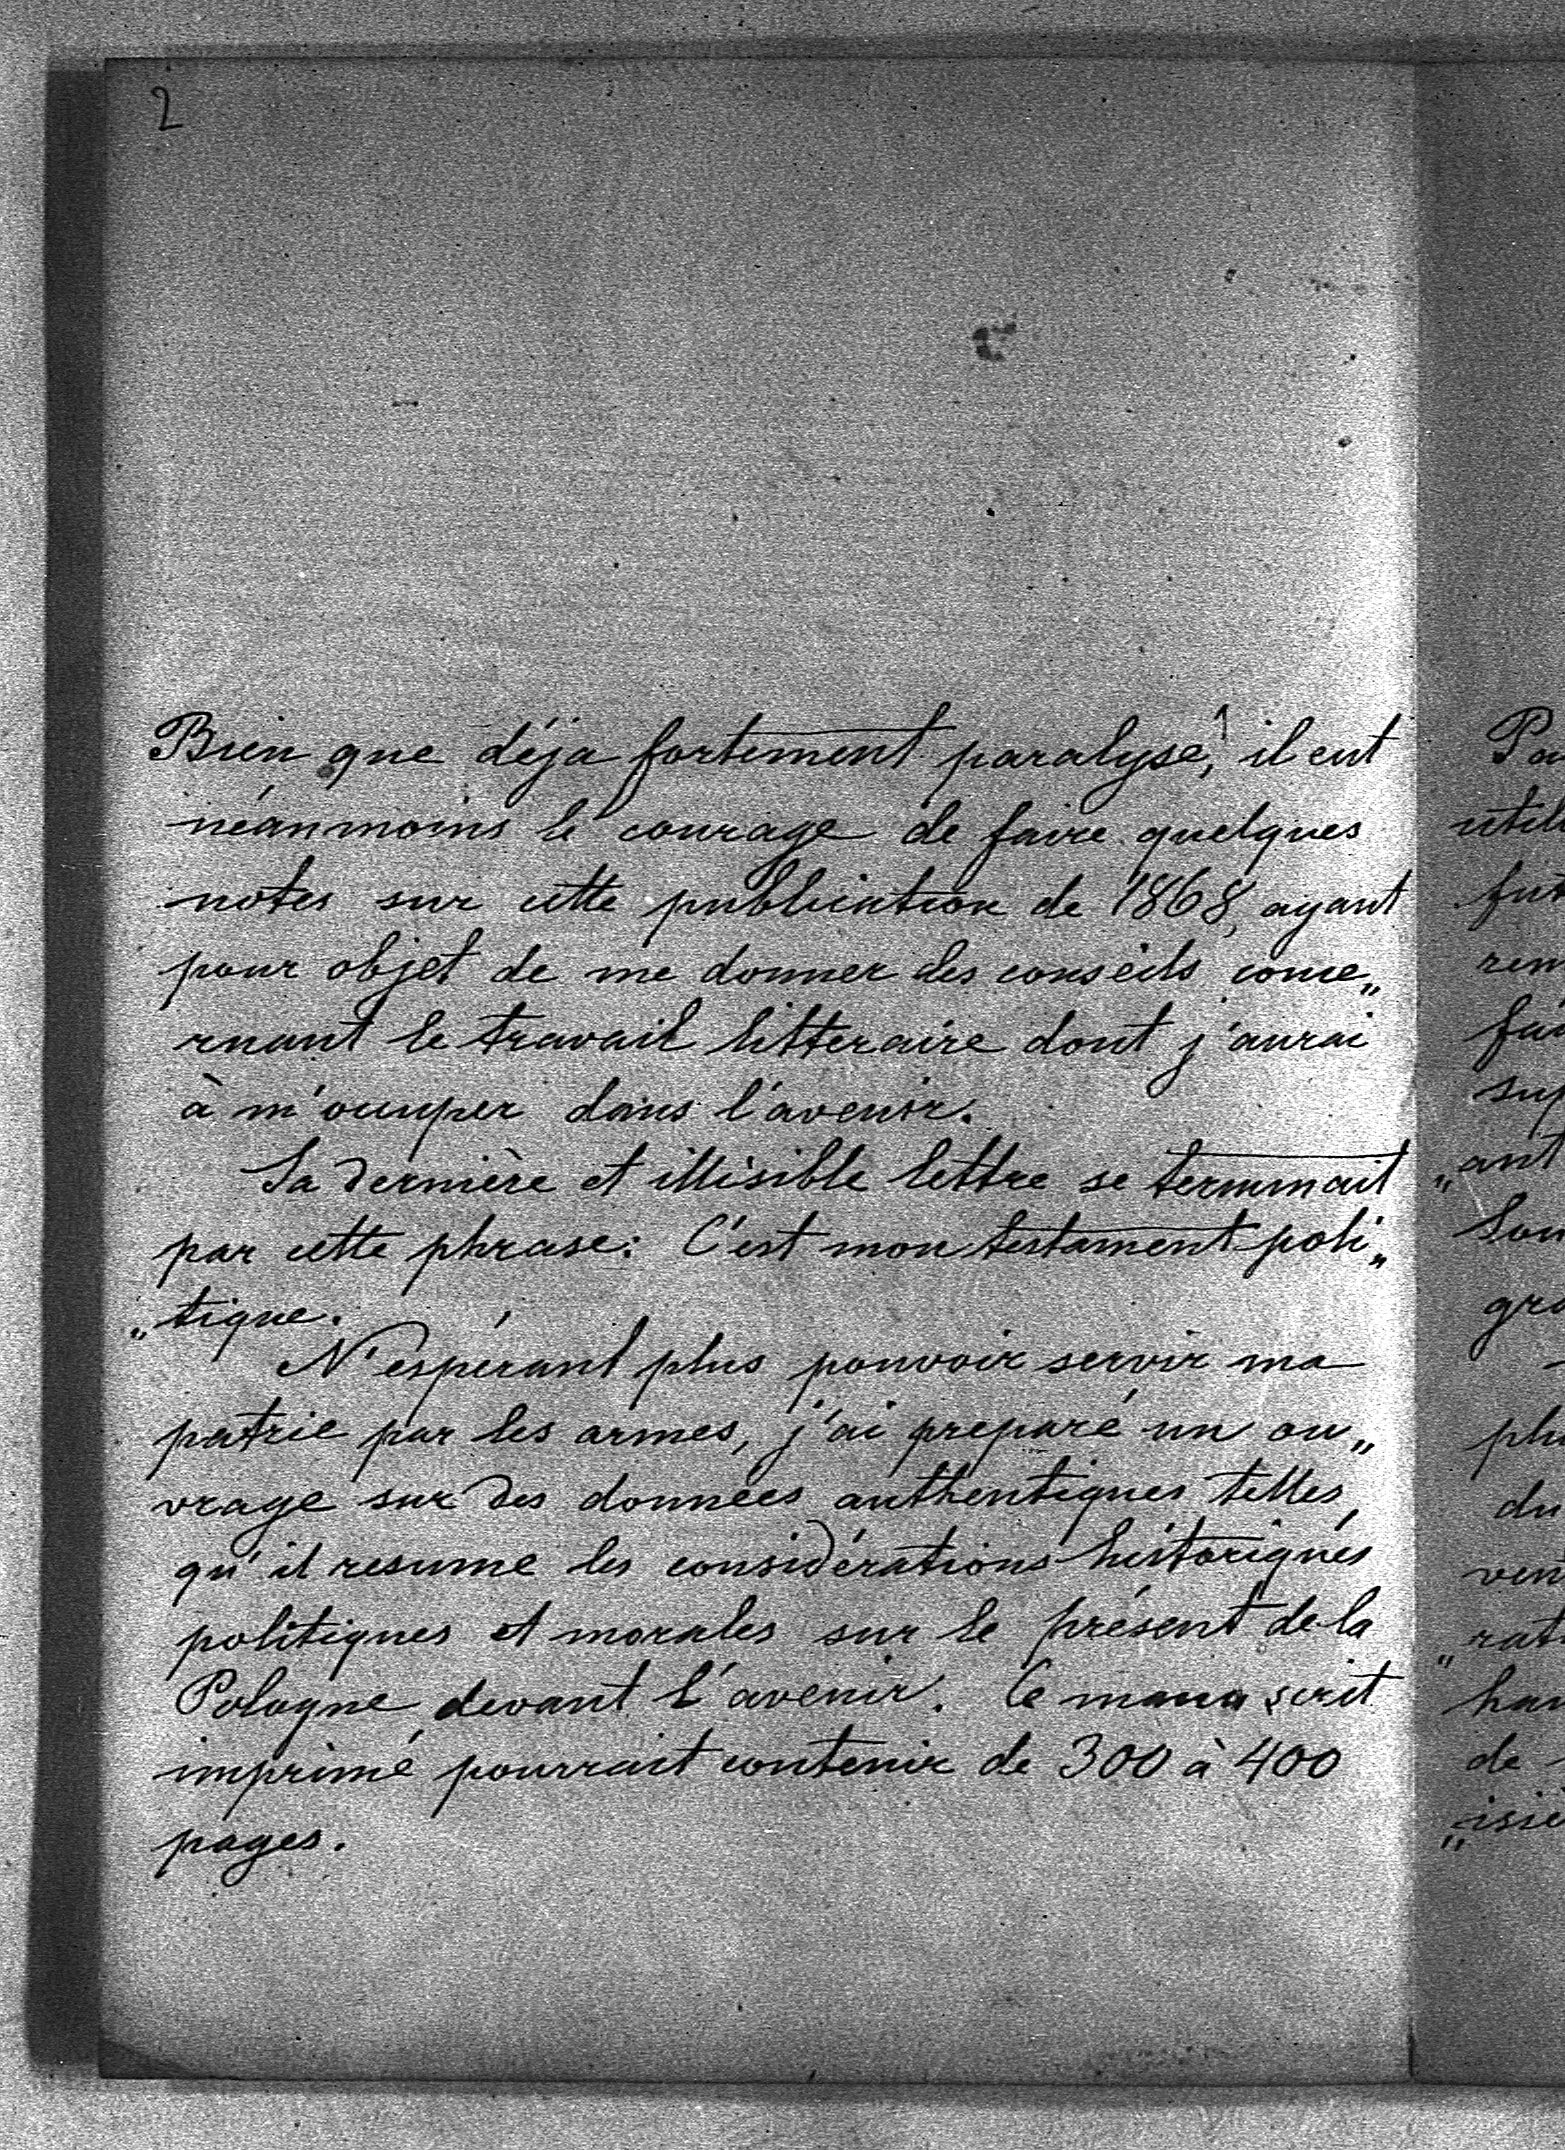 2
Bien que déja fortement paralysé, il eut
néanmoins le courage de faire quelques
notes sur cette publication de 1868, ayant
pour objet de me donner des conseils conce„
rnant le travail litteraire dont j'aurai
à m'occuper dans l'avenir.
Sa dernière et illisible lettre se terminait
par cette phrase: C'est mon testament poli„
„tique.
N'espérant plus pouvoir servir ma
patrie par les armes, j'ai preparé un ou„
vrage sur des données authentiques telles,
qu'il resume les considérations historiques
politiques et morales sur le présent de la
Pologne devant l'avenir. Ce manuscrit
imprimé pourrait contenir de 300 à 400
pages.